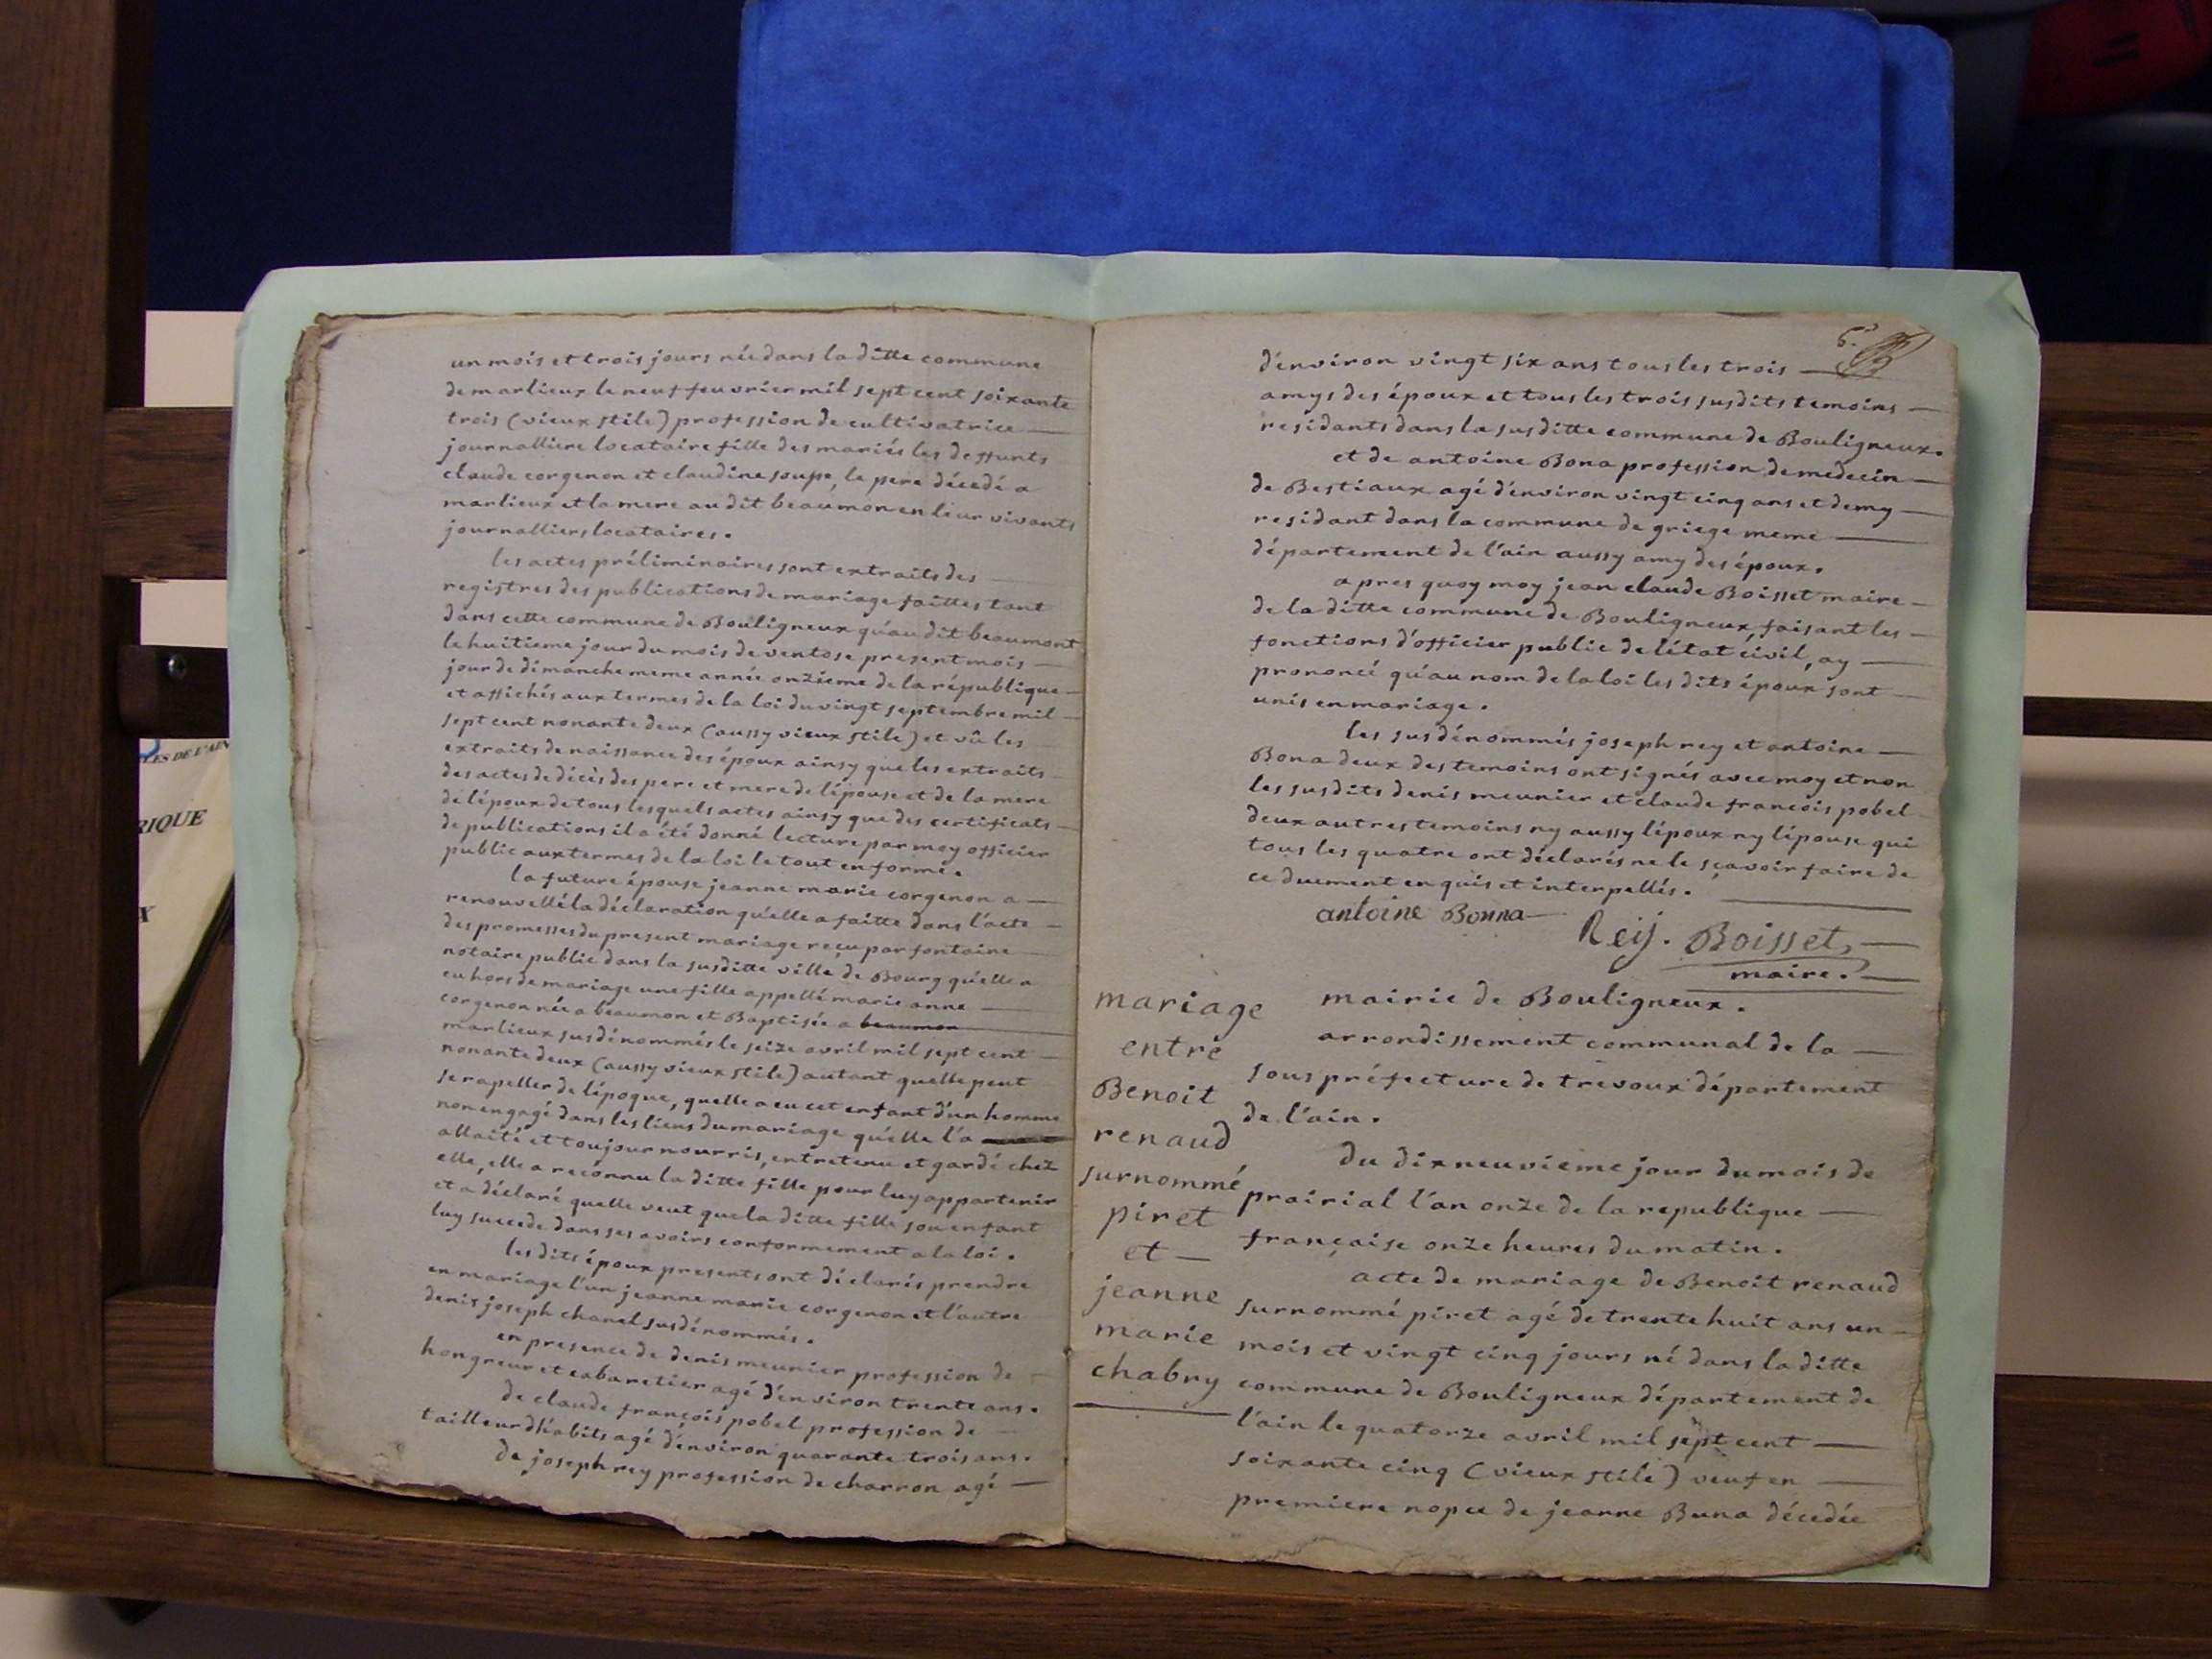 un mois et trois jours née dans la ditte commune
de marlieux le neuf feuvrier mil sept cent soixante
trois (vieux stile) profession de cultivatrice
journalliere locataire fille des mariés les deffunts
claude corgenon et claudine soupe, le pere décedé a
marlieux et la mere au dit beaumon en leur vivants
journalliers locataires.
les actes préliminaires sont extraits des
registres des publications de mariage faittes tant
dans cette commune de Bouligneux qu'au dit beaumont
le huitieme jour du mois de ventose present mois
jour de dimanche meme année onzieme de la république
et affichés aux termes de la loi du vingt septembre mil
sept cent nonante deux (aussy vieux stile) et vû les
extraits de naissance des époux ainsy que les extraits
des actes de décès des pere et mere de l'épouse et de la mere
de l'époux de tous lesquels actes ainsy que des certificats
de publications il a été donné lecture par moy officier
public aux termes de la loi le tout en forme.
la future épouse jeanne marie corgenon a
renouvellé la déclaration qu'elle a faitte dans l'acte
des promesses du present mariage reçu par fontaine
notaire public dans la susditte ville de Bourg qu'elle a
eu hors de mariage une fille appellé marie anne
corgenon née a beaumon et Baptisée a beaumon
marlieux susdénommés le seize avril mil sept cent
nonante deux (aussy vieux stile) autant quelle peut
se rapeller de l'époque, quelle a eu cet enfant d'un homme
non engagé dans les liens du mariage qu'elle l'a
allaité et toujour nourris, entretenu et gardé chez
elle, elle a reconnu la ditte fille pour luy appartenir
et a déclaré quelle veut que la ditte fille son enfant
luy succede dans ses avoirs conformement a la loi.
les dits époux presents ont déclarés prendre
en mariage l'un jeanne marie corgenon et l'autre
denis joseph chanel susdénommés.
en presence de denis meunier profession de
hongreur et cabaretier agé d'environ trente ans.
de claude françois pobel profession de
tailleur d'habits agé d'environ quarante trois ans.
de joseph rey profession de charron agé
6.
d'environ vingt six ans tous les trois
amys des époux et tous les trois susdits temoins
residants dans la susditte commune de Bouligneux.
et de antoine Bona profession de medecin
de Bestiaux agé d'environ vingt cinq ans et demy
residant dans la commune de griege meme
département de l'ain aussy amy des époux.
apres quoy moy jean claude Boisset maire
de la ditte commune de Bouligneux faisant les
fonctions d'officier public de l'état civil, ay
prononcé qu'au nom de la loi les dits époux sont
unis en mariage.
les susdénommés joseph rey et antoine
Bona deux des temoins ont signés avec moy et non
les susdits denis meunier et claude françois pobel
deux autres temoins ny aussy l'époux ny l'épouse qui
tous les quatre ont déclarés ne le sçavoir faire de
ce duement enquis et interpellés.
antoine Bonna
Reij. Boisset,
maire.
mariage
entre
Benoit
renaud
surnommé
piret
et
jeanne
marie
chabry
mairie de Bouligneux.
arrondissement communal de la
sous préfecture de trevoux département
de l'ain.
du dix neuvieme jour du mois de
prairial l'an onze de la republique
française onze heures du matin.
acte de mariage de Benoit renaud
surnommé piret agé de trente huit ans un
mois et vingt cinq jours né dans la ditte
commune de Bouligneux département de
l'ain le quatorze avril mil sept cent
soixante cinq (vieux stile) veuf en
premiere nopce de jeanne Buna décedée